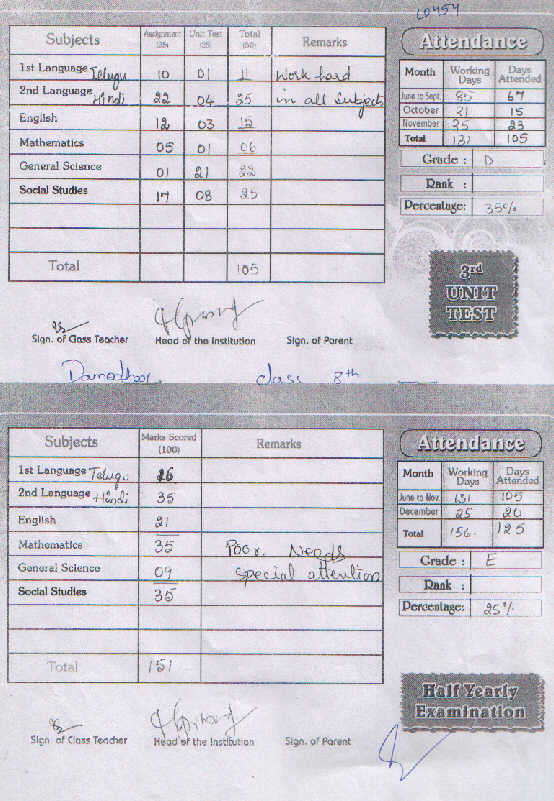 C0454
Subjects Assignment (25) Unit Test (25) Total (50) Remarks
1st Language Telugu 10 01 11 Work hard
2nd Language Hindi 22 04 25 in all Subjects
English 12 03 15
Mathematics 05 01 06
General Science 01 21 22
Social Studies 17 08 25
Total 105
Sign. of Class Teacher Head of the Institution Sign. of Parent
class 8th
Attendance
Month Working Days Days Attended
June to Sept. 85 67
October 21 15
November 25 23
Total 131 105
Grade : D
Rank :
Percentage: 35%
3rd
UNIT
TEST
Subjects Marks Scored (100) Remarks
1st Language Telugu 26
2nd Language Hindi 35
English 21
Mathematics 35 Poor. Needs
General Science 09 special attention
Social Studies 35
Total 151
Sign. of Class Teacher Head of the Institution Sign. of Parent
Attendance
Month Working Days Days Attended
June to Nov. 131 105
December 25 20
Total 156 125
Grade : E
Rank :
Percentage: 25%
Half Yearly
Examination